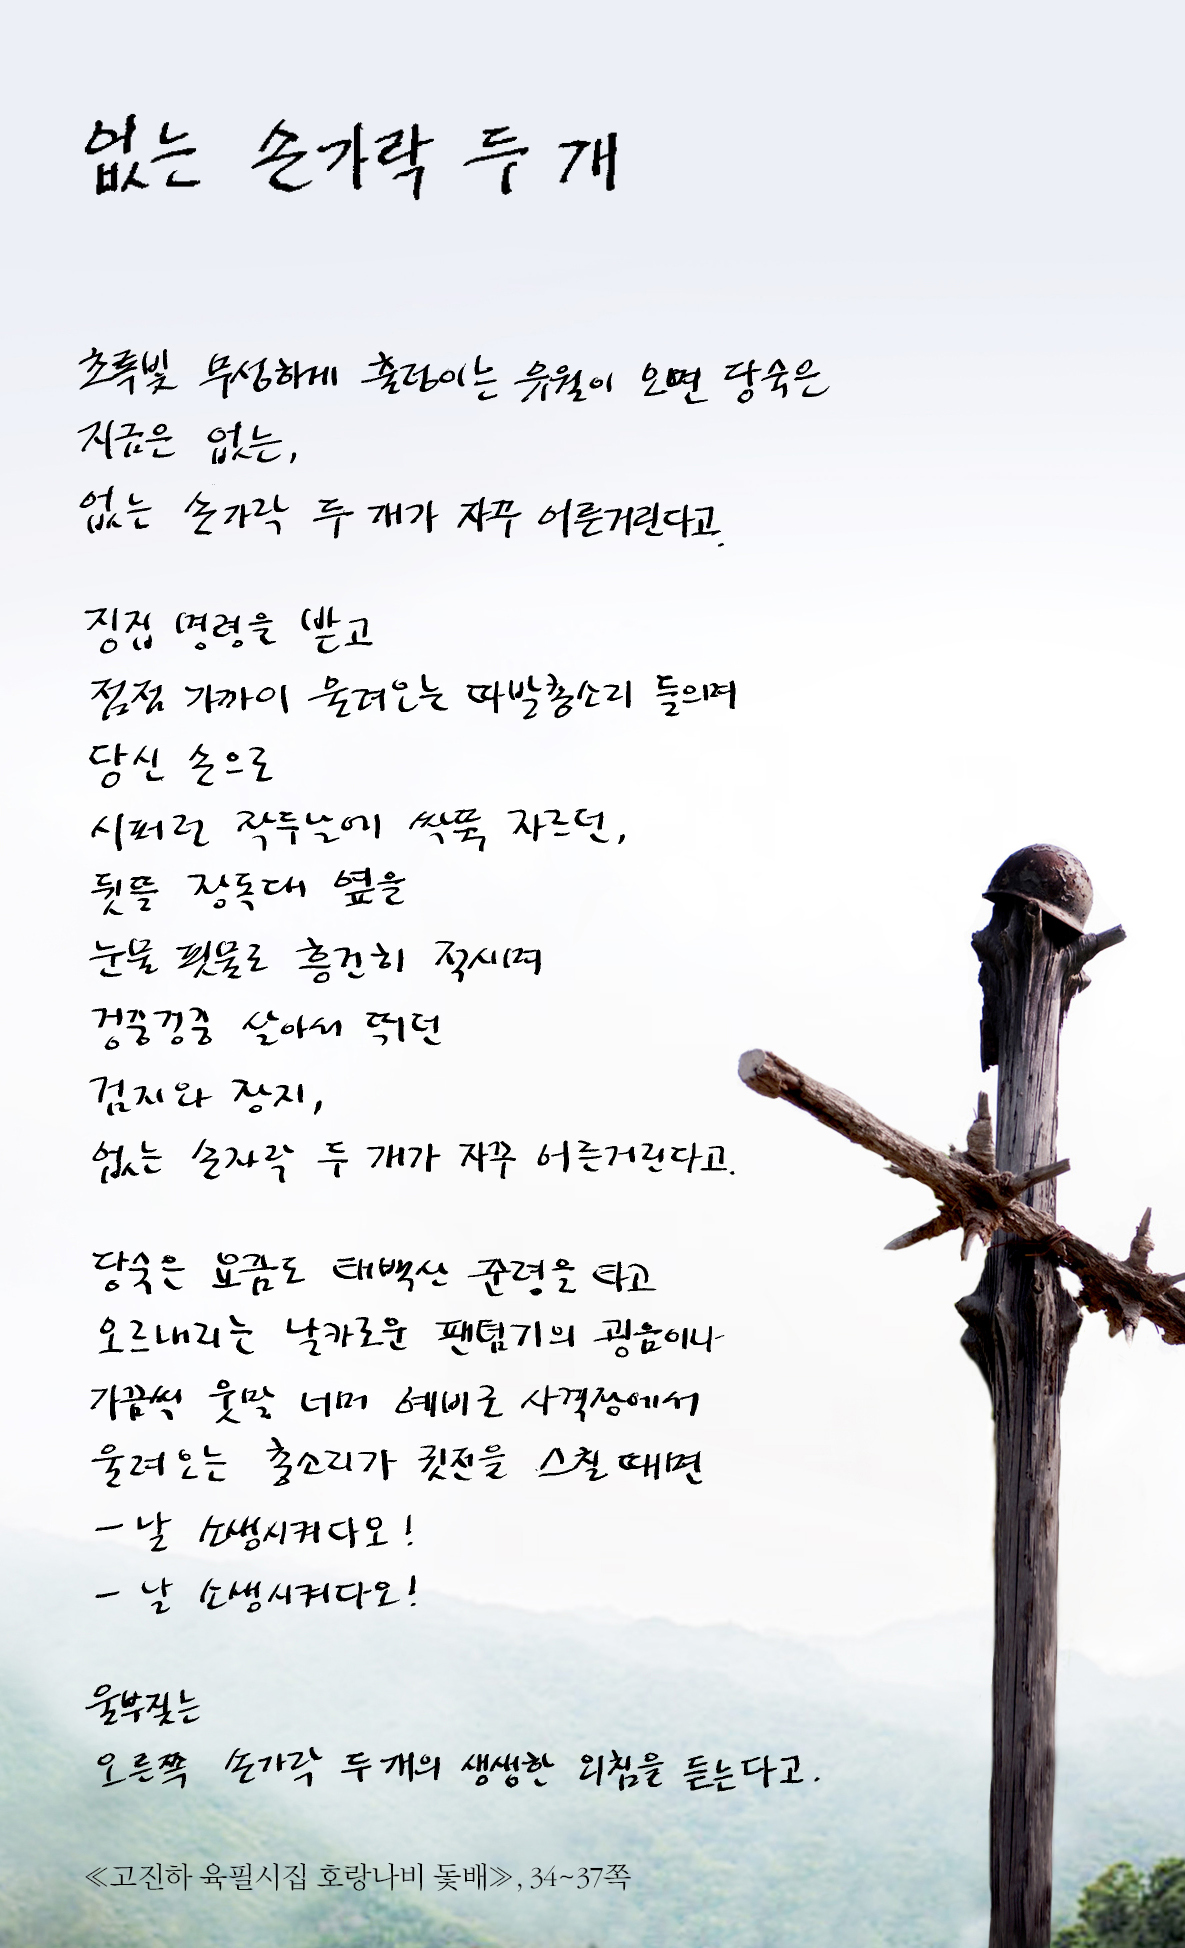 없는 손가락 두 개
초록빛 무성하게 출렁이는 유월이 오면 당숙은
지금은 없는,
없는 손가락 두 개가 자꾸 어른거린다고.
징집 명령을 받고
점점 가까이 울려오는 따발총소리 들으며
당신 손으로
시퍼런 작두날에 싹뚝 자르던,
뒷뜰 장독대 옆을
눈물 핏물로 흥건히 적시며
겅중겅중 살아서 뛰던
검지와 장지,
없는 손가락 두 개가 자꾸 어른거린다고.
당숙은 요즘도 태백산 준령을 타고
오르내리는 날카로운 팬텀기의 굉음이나
가끔씩 윗말 너머 예비군 사격장에서
울려오는 총소리가 귓전을 스칠 때면
— 날 소생시켜다오!
— 날 소생시켜다오!
울부짖는
오른쪽 손가락 두 개의 생생한 외침을 듣는다고.
≪고진하 육필시집 호랑나비 돛배≫, 34~37쪽